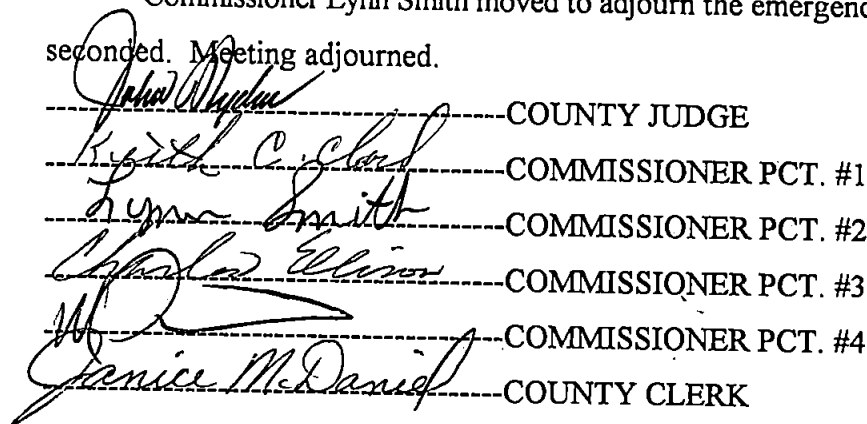 Commissioner Lynn Smith moved to adjourn the emergenc
seconded. Meeting adjourned.
John -----COUNTY JUDGE
Keith C. Clark -----COMMISSIONER PCT. #1
Lynn Smith -----COMMISSIONER PCT. #2
Charles Ellison -----COMMISSIONER PCT. #3
-----COMMISSIONER PCT. #4
Janice McDaniel -----COUNTY CLERK